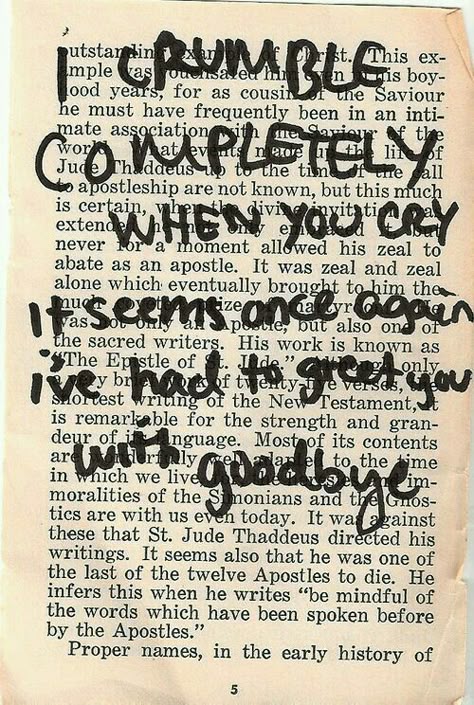 I CRUMBLE
COMPLETELY
WHEN YOU CRY
it seems once again
i've had to greet you
with goodbye
utstanding example of Christ. This ex-
mple was vouchsafed him even in his boy-
ood years, for as cousin of the Saviour
he must have frequently been in an inti-
mate association with the Saviour of the
world. What events made up the life of
Jude Thaddeus up to the time of the call
to apostleship are not known, but this much
is certain, when the divine invitation was
extended only embraced it but
never for a moment allowed his zeal to
abate as an apostle. It was zeal and zeal
alone which eventually brought to him the
much prize martyrdom. He
was not only an Apostle, but also one of
the sacred writers. His work is known as
"The Epistle of St. Jude." only
very brief of twenty-five verses,
shortest writing of the New Testament, it
is remarkable for the strength and gran-
deur of its language. Most of its contents
are wonderfully well adapted to the time
in which we live, for the im-
moralities of the Simonians and the Gnos-
tics are with us even today. It was against
these that St. Jude Thaddeus directed his
writings. It seems also that he was one of
the last of the twelve Apostles to die. He
infers this when he writes "be mindful of
the words which have been spoken before
by the Apostles."
Proper names, in the early history of
5